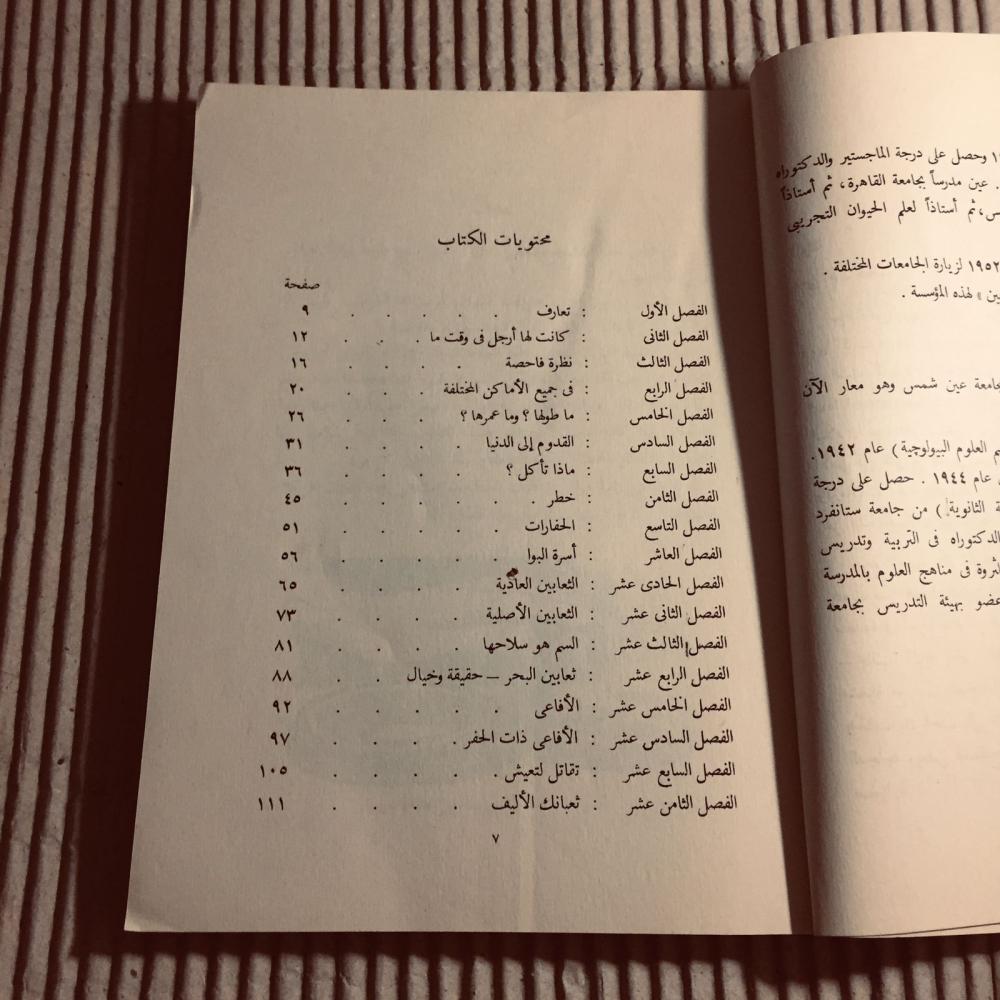 ١ وحصل على درجة الماجستير والدكتوراه
. عين مدرساً بجامعة القاهرة ، ثم أستاذاً
س، ثم أستاذاً لعلم الحيوان التجريبى
١٩٥٢ لزيارة الجامعات المختلفة .
ين » لهذه المؤسسة .
جامعة عين شمس وهو معار الآن
م العلوم البيولوجية ) عام ١٩٤٢.
عام ١٩٤٤ . حصل على درجة
ة الثانوية ) من جامعة ستانفرد
الدكتوراه فى التربية وتدريس
لثروة فى مناهج العلوم بالمدرسة
عضو بهيئة التدريس بجامعة
محتويات الكتاب
صفحة
الفصل الأول : تعارف . . . . . ٩
الفصل الثانى : كانت لها أرجل فى وقت ما . . . ١٢
الفصل الثالث : نظرة فاحصة . . . . ١٦
الفصل الرابع : فى جميع الأماكن المختلفة . . . ٢٠
الفصل الخامس : ما طولها ؟ وما عمرها ؟ . . . ٢٦
الفصل السادس : القدوم إلى الدنيا . . . . ٣١
الفصل السابع : ماذا تأكل ؟ . . . . ٣٦
الفصل الثامن : خطر . . . . . ٤٥
الفصل التاسع : الحفارات . . . . . ٥١
الفصل العاشر : أسرة البوا . . . . . ٥٦
الفصل الحادى عشر : الثعابين العادية . . . . ٦٥
الفصل الثانى عشر : الثعابين الأصلية . . . . ٧٣
الفصل الثالث عشر : السم هو سلاحها . . . . ٨١
الفصل الرابع عشر : ثعابين البحر – حقيقة وخيال . . ٨٨
الفصل الخامس عشر : الأفاعى . . . . . ٩٢
الفصل السادس عشر : الأفاعى ذات الحفر . . . . ٩٧
الفصل السابع عشر : تقاتل لتعيش . . . . . ١٠٥
الفصل الثامن عشر : ثعبانك الأليف . . . . ١١١
٧